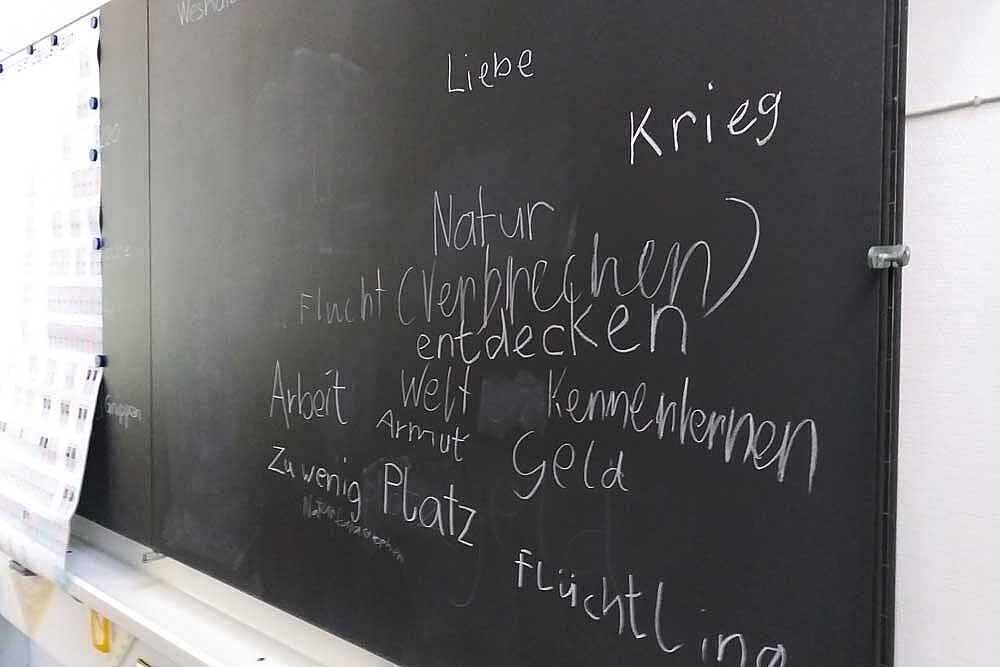 Liebe
Krieg
Natur
Flucht (Verbrechen)
entdecken
Arbeit Welt Kennenlernen
Armut
Zu wenig Platz Geld
Naturkatastrophen
Flüchtling
Gruppen